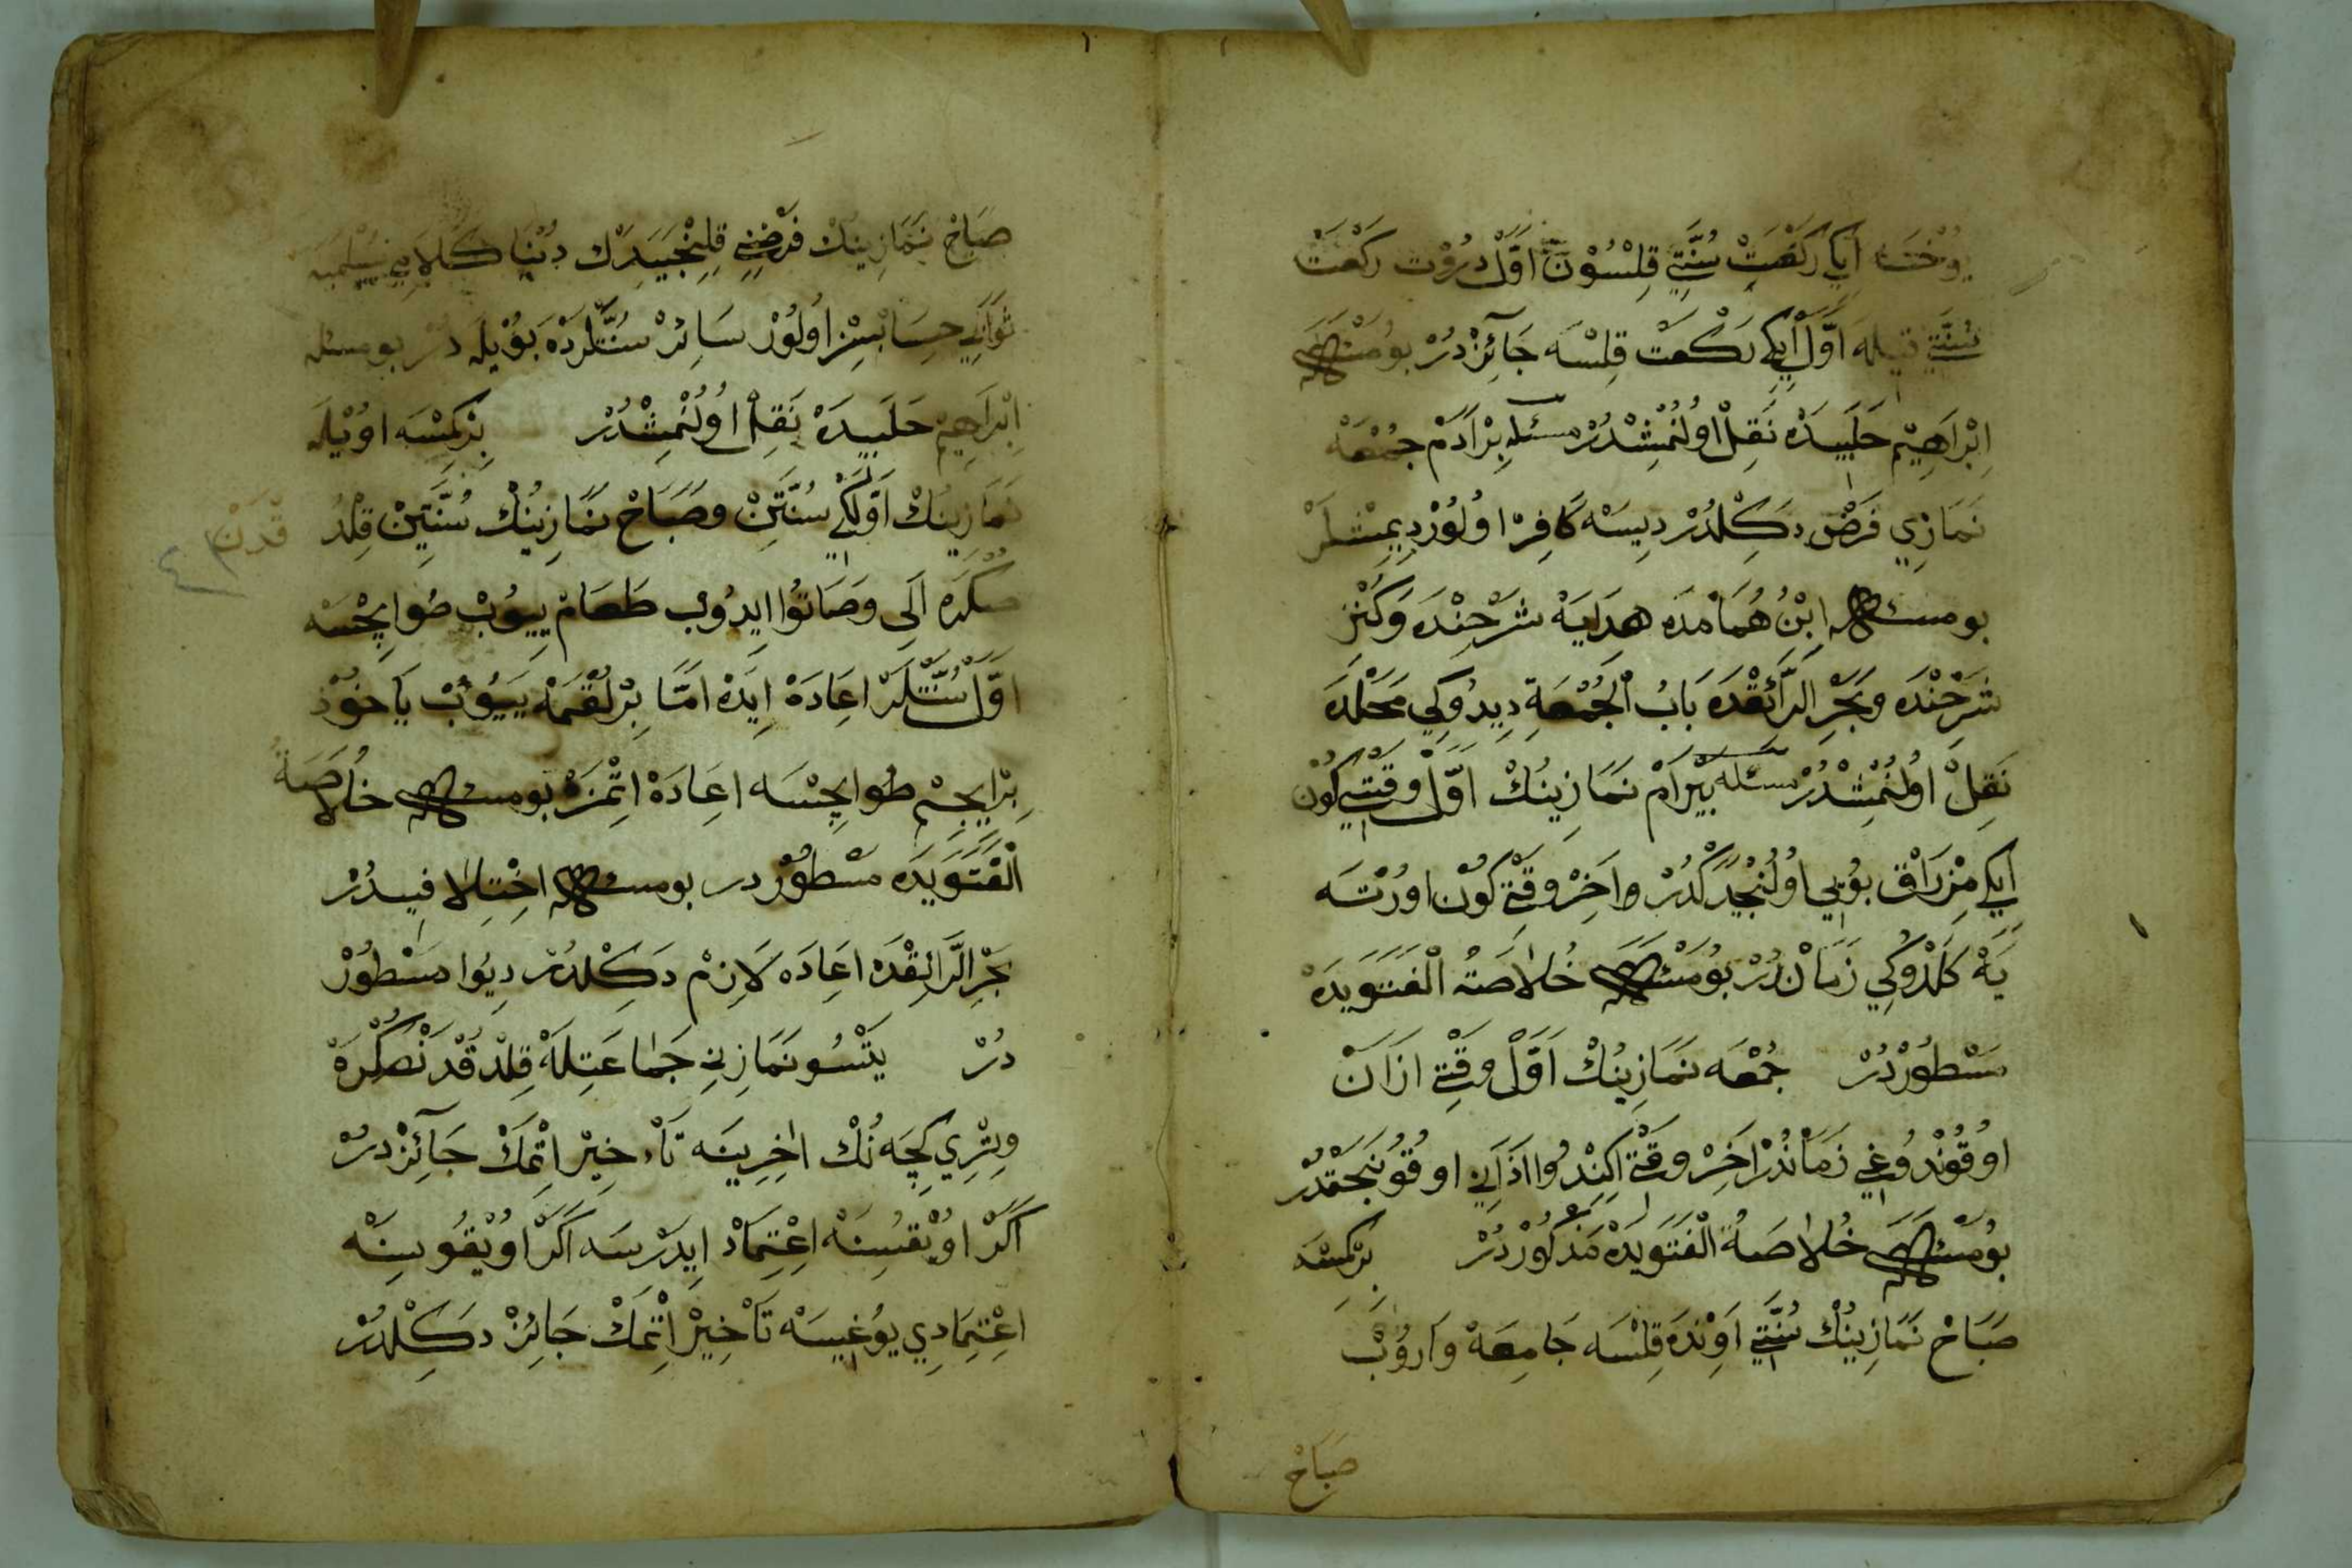 يُوخْسَه اِيكِي رَكْعَتْ سُنَّتِي قِلْسُوْنْ اَوَّلْ دُرْوْت رَكْعَتْ
سُنَّتِي اَوَّلْ اِيكِي رَكْعَتْ قِلْسَه جَآئِزْدُرْ بُو مَسْئَلَه
اِبْرَاهِيْم حَلَبِيدَهْ نَقِلْ اوُلُنْمِشْدُرْ مسئله بِرْ اَدَمْ جُمْعَهْ
نَمَازِي فَرَضْ دَكِلْدُرْ دِيسَهْ كَافِرْ اوُلُوْر دِيمِشْلَرْ
بو مسئله اِبْنُ هُمَامْدَه هِدَايَهْ شَرْحِنْدَه وَكَنْز
شَرْحِنْدَه وَبَحْرِ الرَّائِقْدَه بَابُ الْجُمْعَةِ دِيدُوكِي مَحَلْدَه
نَقِلْ اوُلُنْمِشْدُرْ مسئله بَيْرَامْ نَمَازِينُكْ اَوَّلْ وَقْتِي كُوْن
اِيكِي مِزْرَاقْ بُوْيِي اوُلُنْجَيَدَكْدُرْ وَاخِرْ وَقْتِي كُوْن اوُرْتَه
يَهْ كَلْدُوكِي زَمَانْدُرْ بُو مَسْئَلَه خُلاصَةُ الْفَتَوَيدَهْ
مَسْطُوْرْدُرْ جُمْعَه نَمَازِينُكْ اَوَّلْ وَقْتِي اَزَانْ
اوُقُوْنْدُوغِي زَمَانْدُرْ اَخِرْ وَقْتِي اِكِنْدُوا اَذَانِي اوقُونَجَقْدُرْ
بُو مَسْئَلَه خُلاصَةُ الْفَتَوَيدَهْ مَذْكُوْرْدُرْ بِرْكِمْسَه
صَبَاحْ نَمَازِينُكْ سُنَّتِي اَوِنْدَه قِلْسَه جَامِعَهْ وَارُوْبْ
صَبَاحْ
صَبَاحْ نَمَازِينُكْ فَرْضِنِي قِلِنْجَيَدَكْ دُنْيَا كَلَامِي سَيْلَمِيَه
ثَوَابِي حِسَابْسِزْ اوُلُوْر سَائِرْ سُنَّتْلَرْدَهْ بُوْيْلَه دُرْ بو مسئله
اِبْرَاهِيمْ حَلَبِيدَهْ نَقِلْ اوُلُنْمِشْدُرْ بِرْكِمْسَه اوُيْلَه
نَمَازِينُكْ اَوَّلْكِي سُنَّتِنْ وَصَبَاحْ نَمَازِينُكْ سُنَّتِينْ قِلْدُ قْدَنْ
صُكْرَه اَلِي وَصَاتُوا ايدُوبْ طَعَامْ يِيُوبْ صُو اِيچْسَه
اَوَّلْ سُنَّتْلَرْ اعَادَهْ اِيدَه امَّا بِرْ لُقْمَهْ يَيُوْبْ يَاخُوْذ
بِرْ اِيچِمْ صُو اِيچْسَه اعَادَهْ اتْمَزْ بو مسئله خُلاصَةُ
الْفَتَوَيدَه مَسْطُوْر در بو مسئله اخْتِلافِيدُرْ
بَحْرِ الرَّائِقْدَه اعَادَه لَازِمْ دَكِلْدُرْ دِيُوا مَسْطُوْرْ
دُرْ يَتْسُو نَمَازِنِي جَمَاعَتِلَهْ قِلْدُقْدَنْصُكْرَهْ
وِتْرِي كِچَه نُكْ اٰخِرِينَه تَأْخِيرْ اتْمَكْ جَآئِزْدُرْ
اَكَرْ اوُيْقُسِنَه اعْتِمَادْ اِيدَرْسَه اَكَرْ اوُيْقُوسِنَه
اعْتِمَادِي يُوغِيسَهْ تَأْخِيرْ اتْمَكْ جَائِزْ دَكِلْدُرْ